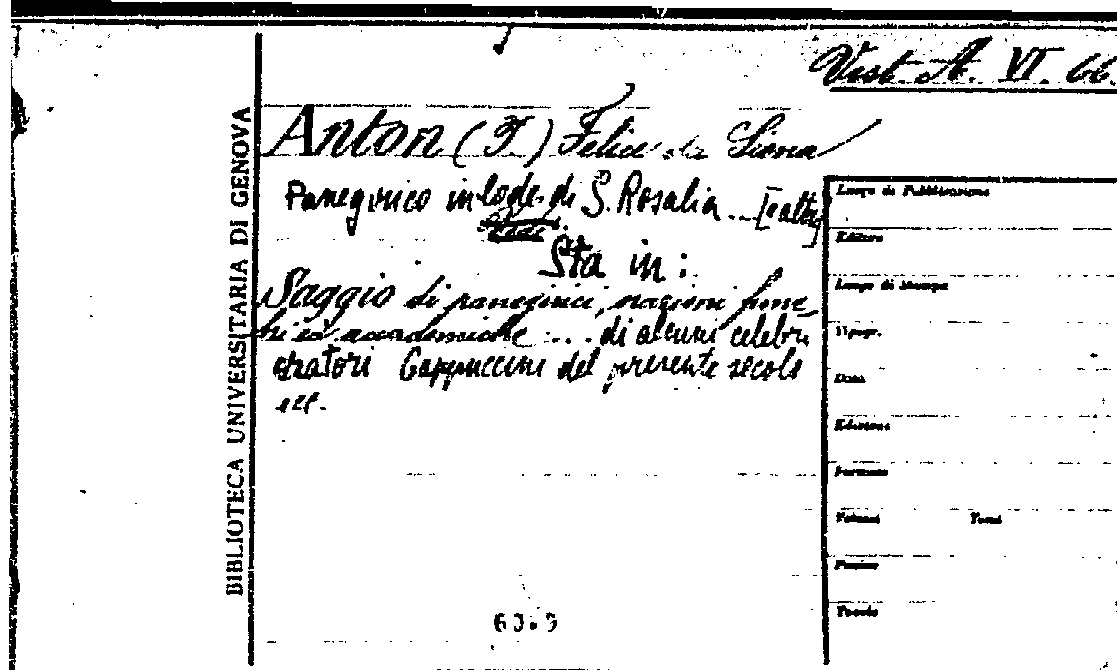 Vist. A. VI. 66.
BIBLIOTECA UNIVERSITARIA DI GENOVA
Anton (F.) Felice da Siena
Panegirico in lode di S. Rosalia ... [e altri]
Sta in:
Saggio di panegirici, orazioni fune
bri ed accademiche .... di alcuni celebri
oratori Cappuccini del presente secolo
ecc.
Luogo di Pubblicazione
Editore
Luogo di Stampa
Tipogr.
Data
Edizione
Formato
Volumi Tomi
Pagine
Tavole